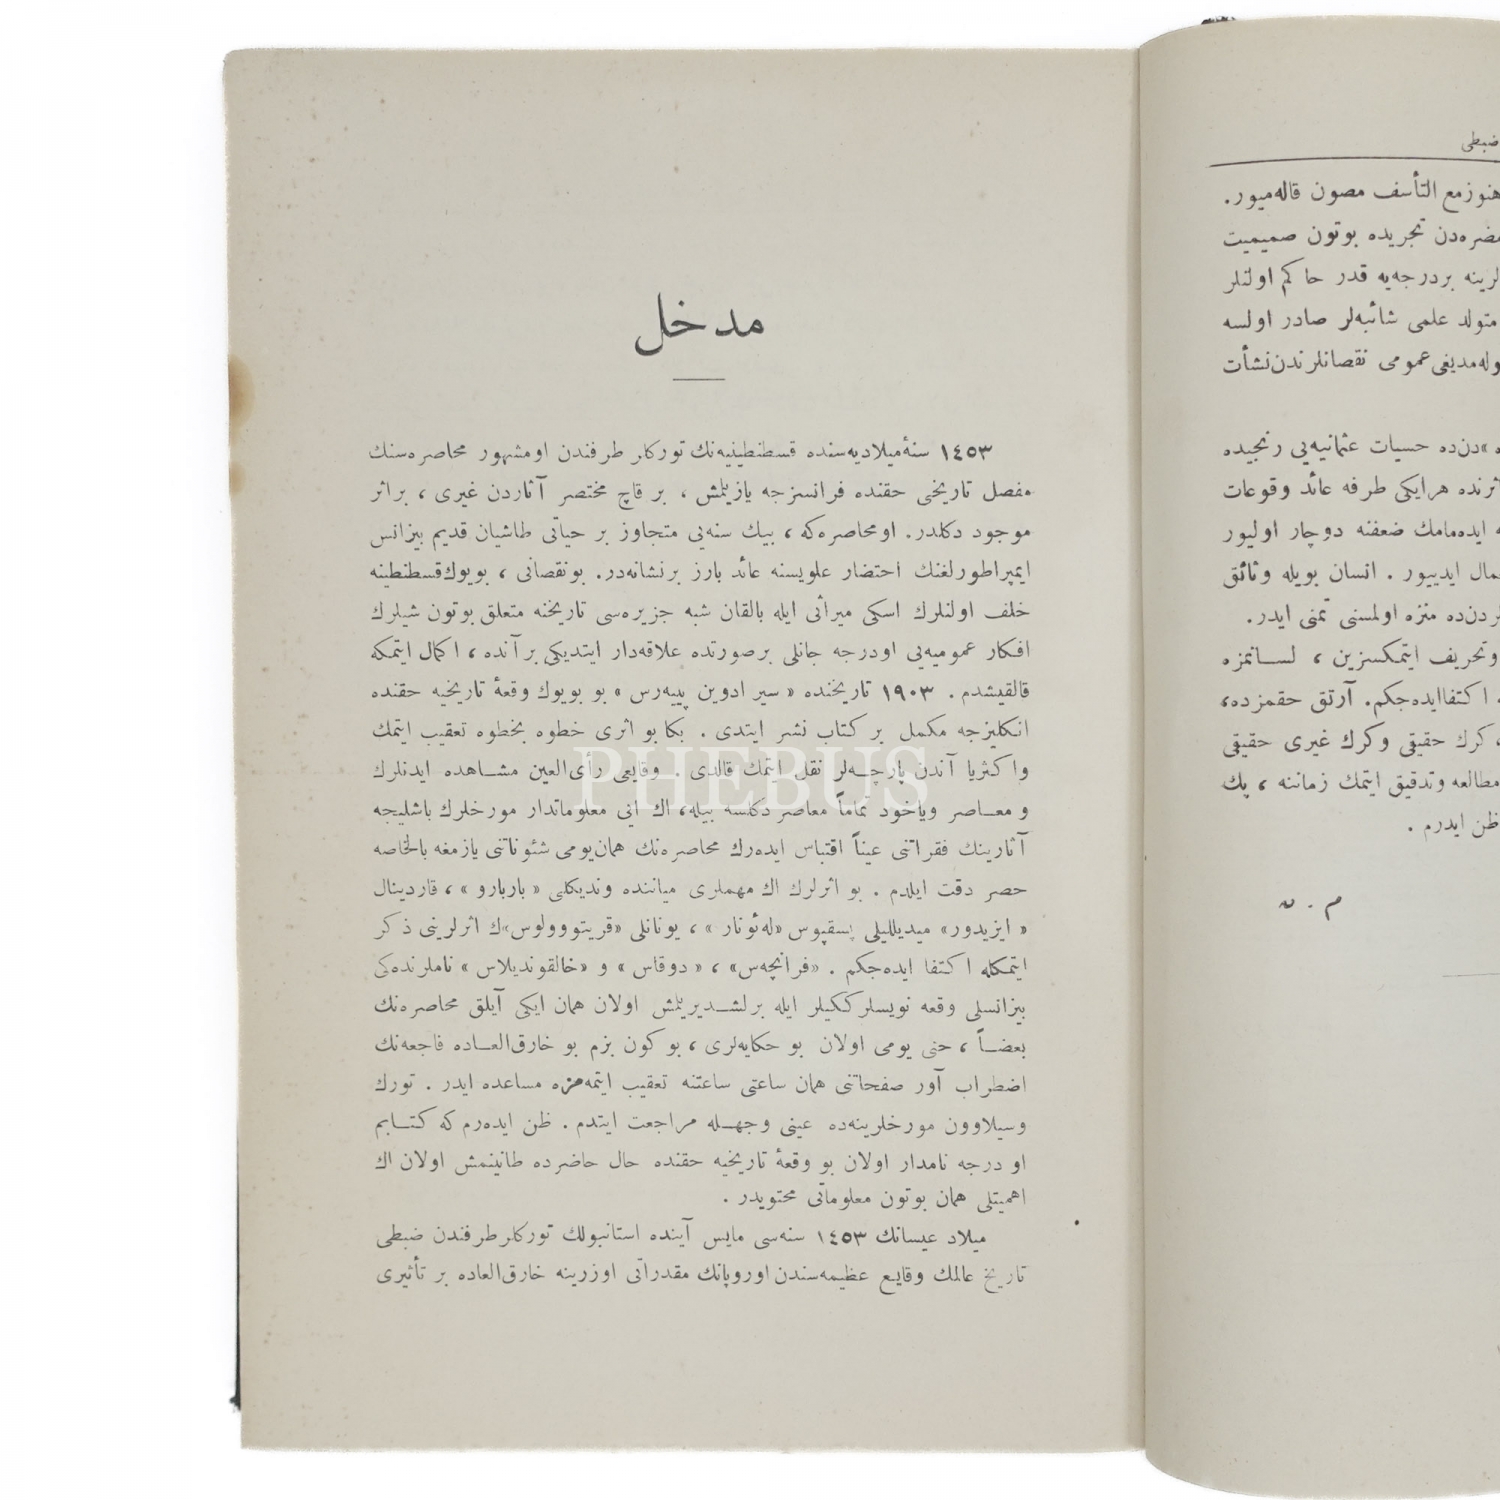 مدخل
١٤٥٣ سنۀ میلادیه‌سنده قسطنطینیه‌نك تورکلر طرفندن او مشهور محاصره‌سنك
مفصل تاریخی حقنده فرانسزجه یازیلمش ، بر قاچ مختصر آثاردن غیری ، بر اثر
موجود دکلدر. او محاصره‌که ، بیك سنه‌یی متجاوز بر حیاتی طاشیان قدیم بیزانس
ایمپراطورلغنك احتضار علویسنه عائد بارز برنشانه‌در. بو نقصانی ، بویوك قسطنطینه
خلف اولنلرك اسکی میراثی ایله بالقان شبه جزیره‌سی تاریخنه متعلق بوتون شیلرك
افکار عمومیه‌یی اودرجه جانلی برصورتده علاقه‌دار ایتدیکی بر آنده ، اکمال ایتمکه
قالقیشدم . ١٩٠٣ تاریخنده « سیر ادوین پییه‌رس » بو بویوك وقعۀ تاریخیه حقنده
انکلیزجه مکمل بر کتاب نشر ایتدی . بکا بو اثری خطوه بخطوه تعقیب ایتمك
واکثریا آندن پارچه‌لر نقل ایتمك قالدی . وقایعی رأی‌العین مشاهده ایدنلرك
و معاصر ویاخود تماماً معاصر دکلسه بیله ، اك ایی معلوماتدار مورخلرك باشلیجه
آثارینك فقراتنی عیناً اقتباس ایده‌رك محاصره‌نك همان یومی شئوناتنی یازمغه بالخاصه
حصر دقت ایلدم . بو اثرلرك اك مهملری میاننده وندیکلی « باربارو » ، قاردینال
« ایزیدور» میدیللیلی پسقپوس «له‌ئونار » ، یونانلی «قریتووولوس»ك اثرلرینی ذکر
ایتمکله اکتفا ایده‌جکم . «فرانچه‌س» ، « دوقاس » و «خالقوندیلاس » ناملرنده‌کی
بیزانسلی وقعه نویسلرککیلر ایله برلشدیریلمش اولان همان ایکی آیلق محاصره‌نك
بعضاً ، حتی یومی اولان بو حکایه‌لری ، بو کون بزم بو خارق‌العاده فاجعه‌نك
اضطراب آور صفحاتنی همان ساعتی ساعتنه تعقیب ایتمه‌مزه مساعده ایدر . تورك
وسیلاوون مورخلرینه‌ده عینی وجهله مراجعت ایتدم . ظن ایده‌رم که کتابم
او درجه نامدار اولان بو وقعۀ تاریخیه حقنده حال حاضرده طانینمش اولان اك
اهمیتلی همان بوتون معلوماتی محتویدر .
میلاد عیسانك ١٤٥٣ سنه‌سی مایس آینده استانبولك تورکلر طرفندن ضبطی
تاریخ عالمك وقایع عظیمه‌سندن اوروپانك مقدراتی اوزرینه خارق‌العاده بر تأثیری
PHEBUS
ضبطی
هنوز مع التأسف مصون قاله‌میور.
تجریده بوتون صمیمیت
لرینه بر درجه‌یه قدر حاکم اولنلر
متولد علمی شائبه‌لر صادر اولسه
عمومی نقصانلرندن نشأت
دن‌ده حسیات عثمانیه‌یی رنجیده
هر ایکی طرفه عائد وقوعات
ایده‌مامك ضعفنه دوچار اولیور
ایدییور . انسان بویله وثائق
منزه اولمسنی تمنی ایدر.
وتحریف ایتمکسزین ، لسانمزه
اکتفا ایده‌جکم. آرتق حقمزده،
کرك حقیقی وکرك غیری حقیقی
مطالعه وتدقیق ایتمك زماننه ، پك
ظن ایدرم .
م . ن